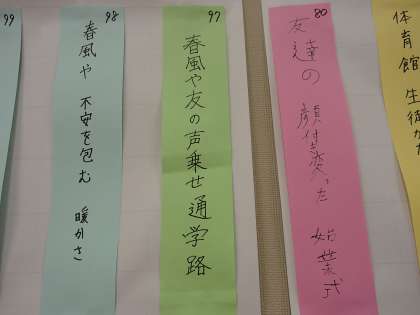 80
友達の 顔付き変った 始業式
97
春風や友の声乗せ通学路
98
春風や 不安を包む 暖かさ
99
体育館 生徒が